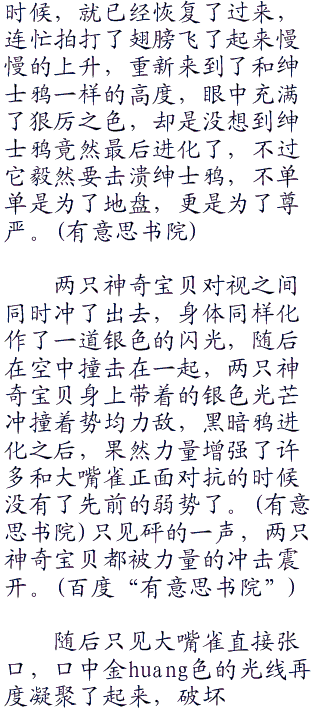 时候，就已经恢复了过来，
连忙拍打了翅膀飞了起来慢
慢的上升，重新来到了和绅
士鸦一样的高度，眼中充满
了狠厉之色，却是没想到绅
士鸦竟然最后进化了，不过
它毅然要击溃绅士鸦，不单
单是为了地盘，更是为了尊
严。(有意思书院)
两只神奇宝贝对视之间
同时冲了出去，身体同样化
作了一道银色的闪光，随后
在空中撞击在一起，两只神
奇宝贝身上带着的银色光芒
冲撞着势均力敌，黑暗鸦进
化之后，果然力量增强了许
多和大嘴雀正面对抗的时候
没有了先前的弱势了。(有意
思书院)只见砰的一声，两只
神奇宝贝都被力量的冲击震
开。(百度“有意思书院”)
随后只见大嘴雀直接张
口，口中金huang色的光线再
度凝聚了起来，破坏